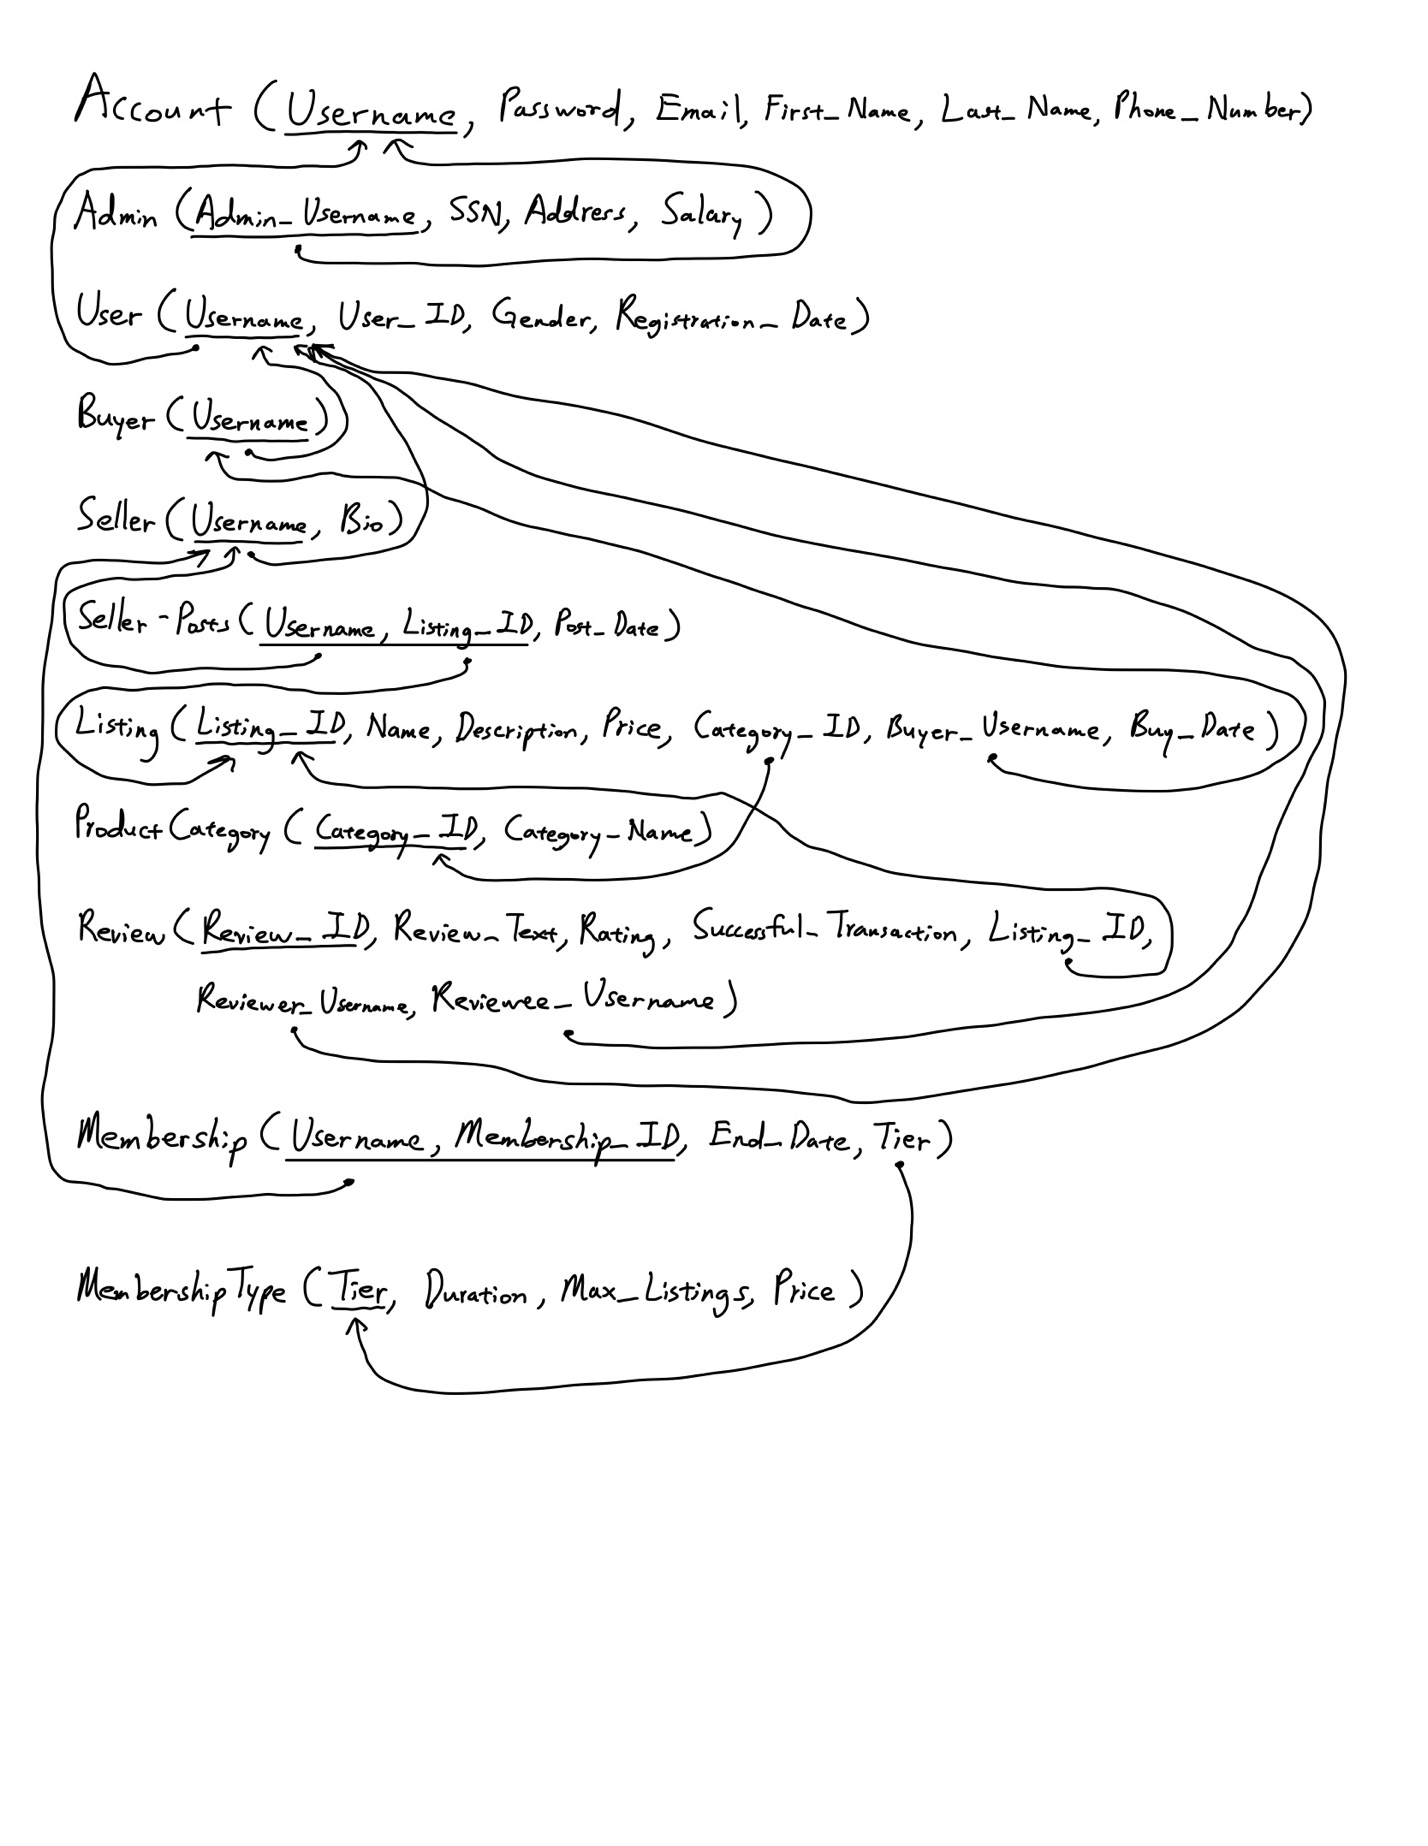 Account (Username, Password, Email, First_Name, Last_Name, Phone_Number)
Admin (Admin_Username, SSN, Address, Salary)
User (Username, User_ID, Gender, Registration_Date)
Buyer (Username)
Seller (Username, Bio)
Seller-Posts (Username, Listing_ID, Post_Date)
Listing (Listing_ID, Name, Description, Price, Category_ID, Buyer_Username, Buy_Date)
Product Category (Category_ID, Category-Name)
Review (Review_ID, Review_Text, Rating, Successful_Transaction, Listing_ID,
Reviewer_Username, Reviewee_Username)
Membership (Username, Membership_ID, End_Date, Tier)
MembershipType (Tier, Duration, Max_Listings, Price)